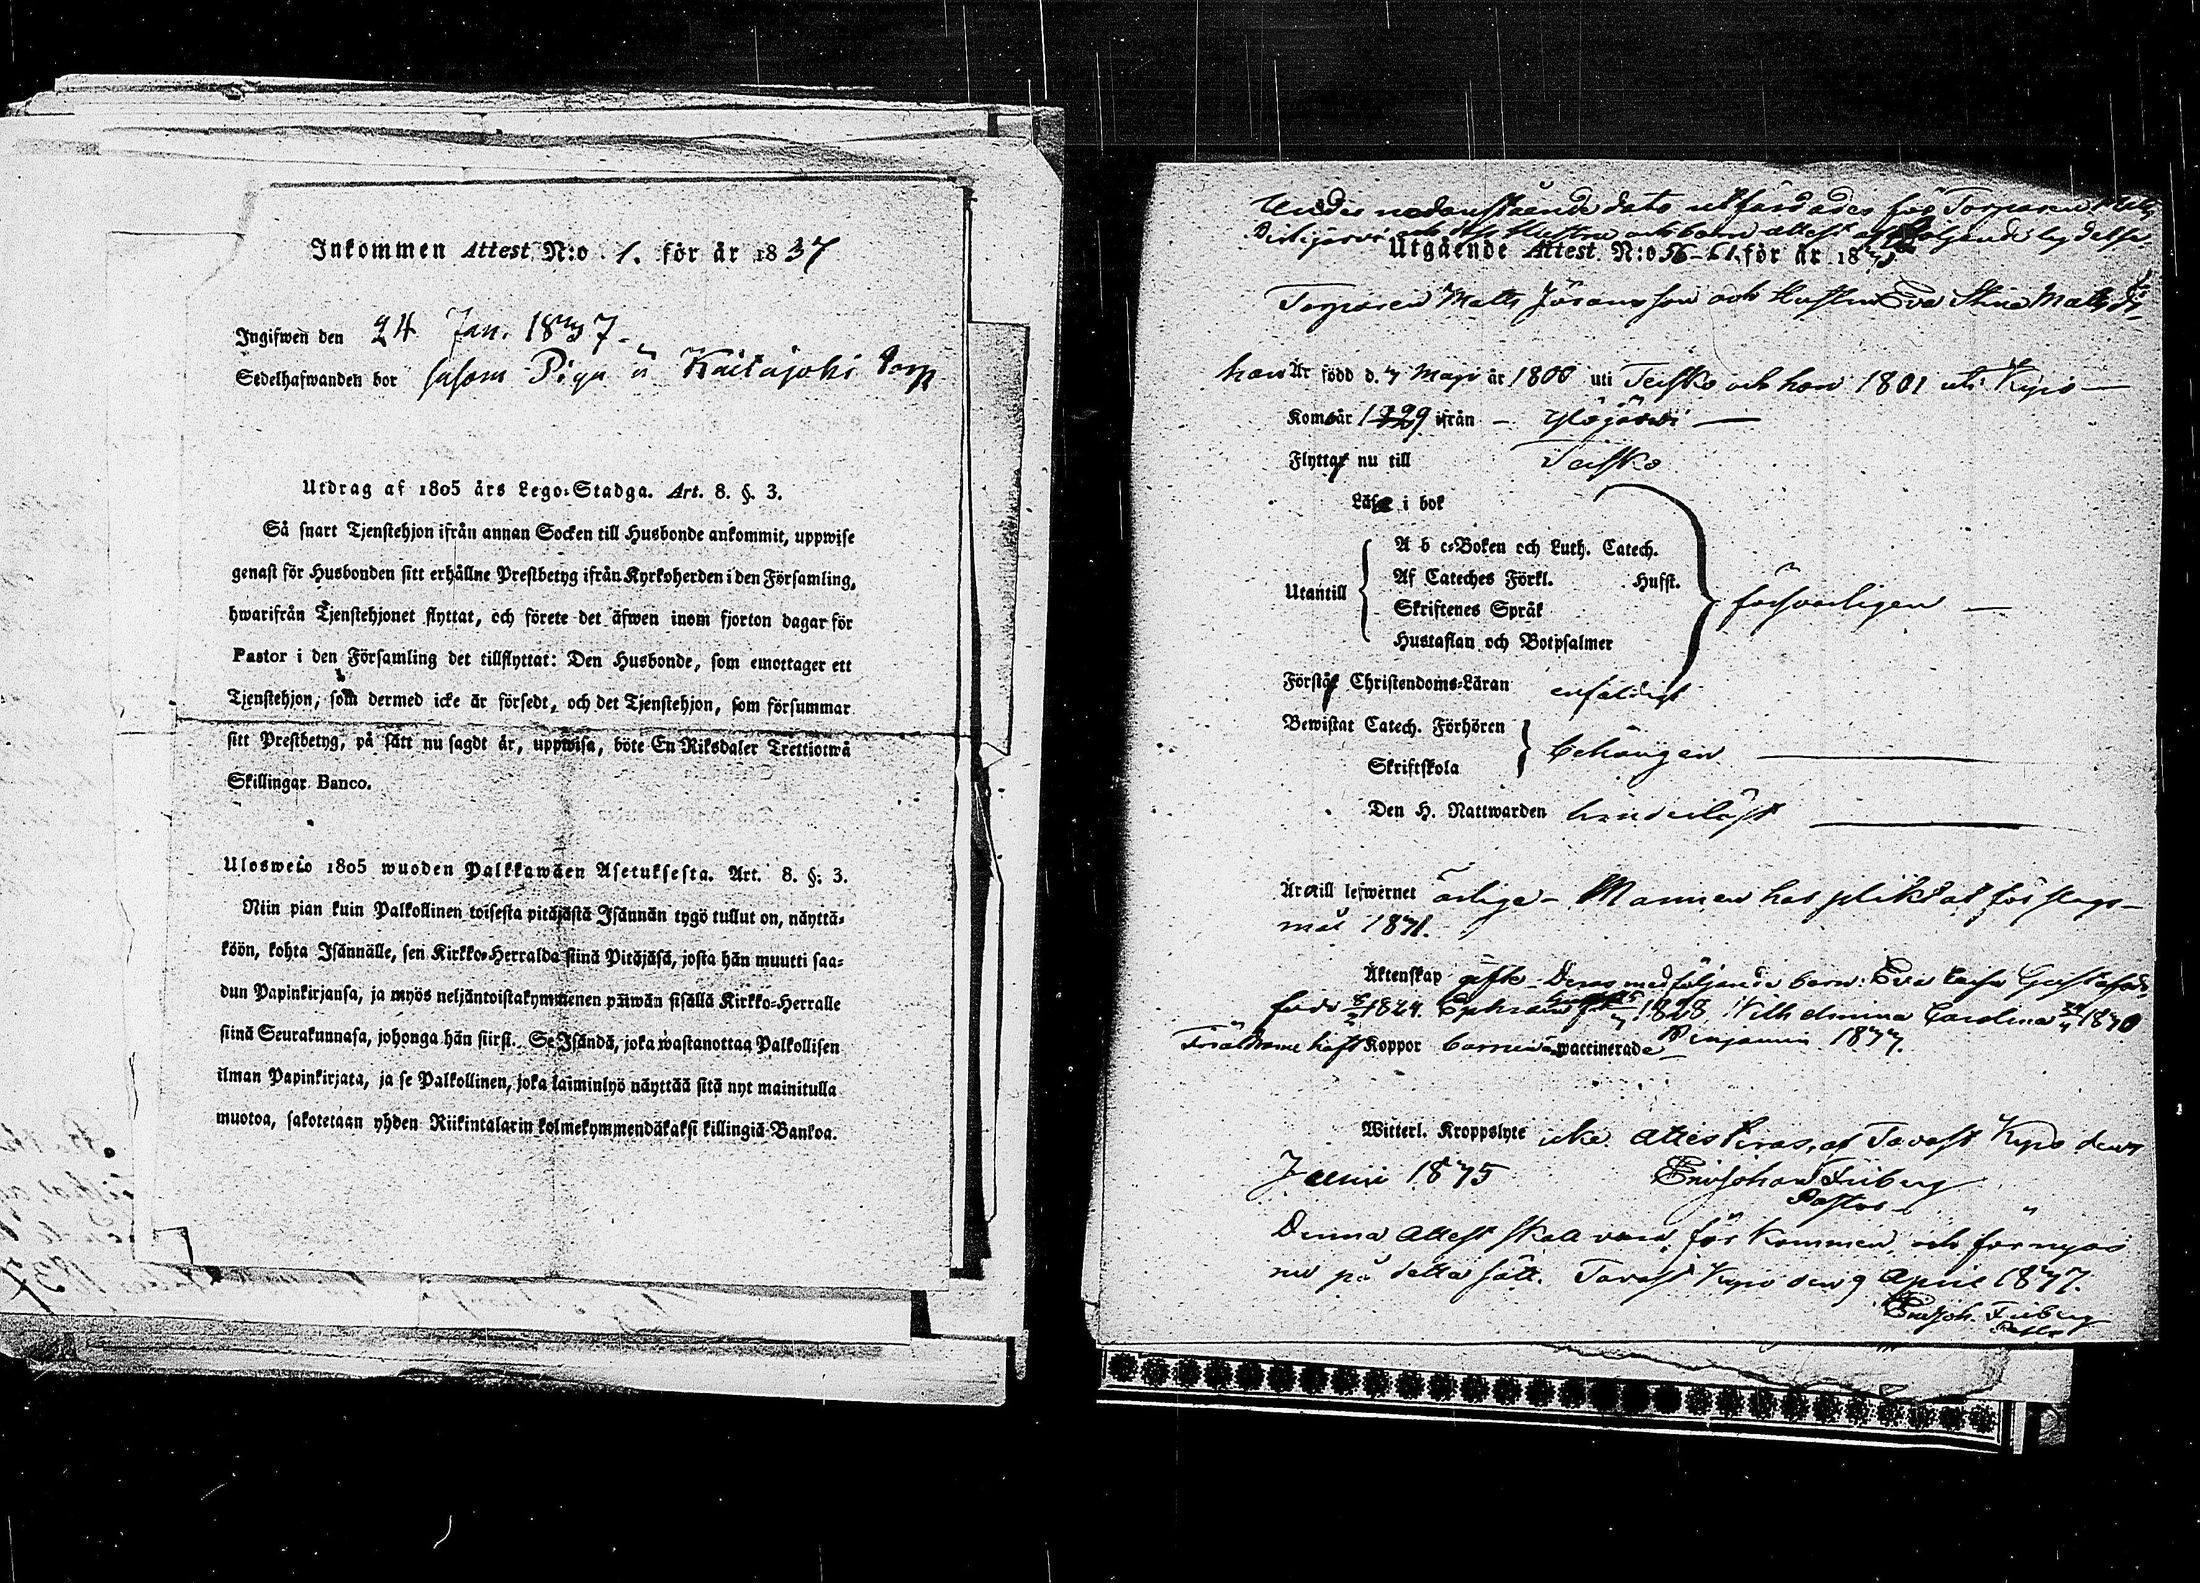 Inkommen Attest N:o 1. för år 1837
Ingifwen den 24 Jan. 1837
Sedelhafwanden bor såsom Piga å Kaitajoki Torp
Utdrag af 1805 års Lego-Stadga. Art. 8. §. 3.
Så snart Tjenstehjon ifrån annan Socken till Husbonde ankommit, uppwise
genast för Husbonden sitt erhållne Prestbetyg ifrån Kyrkoherden i den Församling,
hwarifrån Tjenstehjonet flyttat, och förete det äfwen inom fjorton dagar för
Pastor i den Församling det tillflyttat: Den Husbonde, som emottager ett
Tjenstehjon, som dermed icke är försedt, och det Tjenstehjon, som försummar
sitt Prestbetyg, på sätt nu sagdt är, uppwisa, böte En Riksdaler Trettiotwå
Skillingar Banco.
Ulosweto 1805 wuoden Palkkawäen Asetuksesta. Art. 8. §. 3.
Niin pian kuin Palkollinen toisesta pitäjästä Isännän tygö tullut on, näyttä-
köön, kohta Isännälle, sen Kirkko-Herralda siinä Pitäjäsä, josta hän muutti saa-
dun Papinkirjansa, ja myös neljäntoistakymmenen päiwän sisällä Kirkko-Herralle
siinä Seurakunnasa, johonga hän siirsi. Se Isändä, joka wastanottaa Palkollisen
ilman Papinkirjata, ja se Palkollinen, joka laiminlyö näyttää sitä nyt mainitulla
muotoa, sakotetaan yhden Riikintalarin kolmekymmendäkaksi killingiä Bankoa.
Under nedanstående dato utfärdades för Torparen Matts
och dess Hustru och barn attest af följande lydelse
Utgående Attest N:o 56-61 för år 187
Torparen Matts Göransson och Hustrun Eva Stina Mattsdr
han Är född d. 7 Maji år 1800 uti Teisko och hon 1801 uti Kyro
Kom år 1829 ifrån – Ylöjärvi
Flyttar nu till Teisko
Läser i bok
A b c-Boken och Luth. Catech.
Af Cateches Förkl. Hufst.
Utantill
Skriftenes Språk
försvarligen
Hustaflan och Botpsalmer
Förstår Christendoms-Läran enfaldigt
Bewistat Catech. Förhören
behörigen
Skriftskola
Den H. Nattwarden
Är till lefwernet ärlige – Mannen har pliktat för slags-
mål 1871.
Äktenskap gifte – Deras medföljande barn: Eva Gustafsdr
född 1824. Ephraim 1828 Wilhelmina Carolina 1870
Benjamin 1877.
Föräldrarne haft Koppor barnen waccinerade
Witterl. Kroppslyte icke. Attesteras, af Tavast Kyro den
Junii 1875 Friberg
Pastor
Denna Attest skall vara för kommen, och förnyas
nu på detta sätt. Tavast Kyro den 9 April 1877.
Joh. Friberg